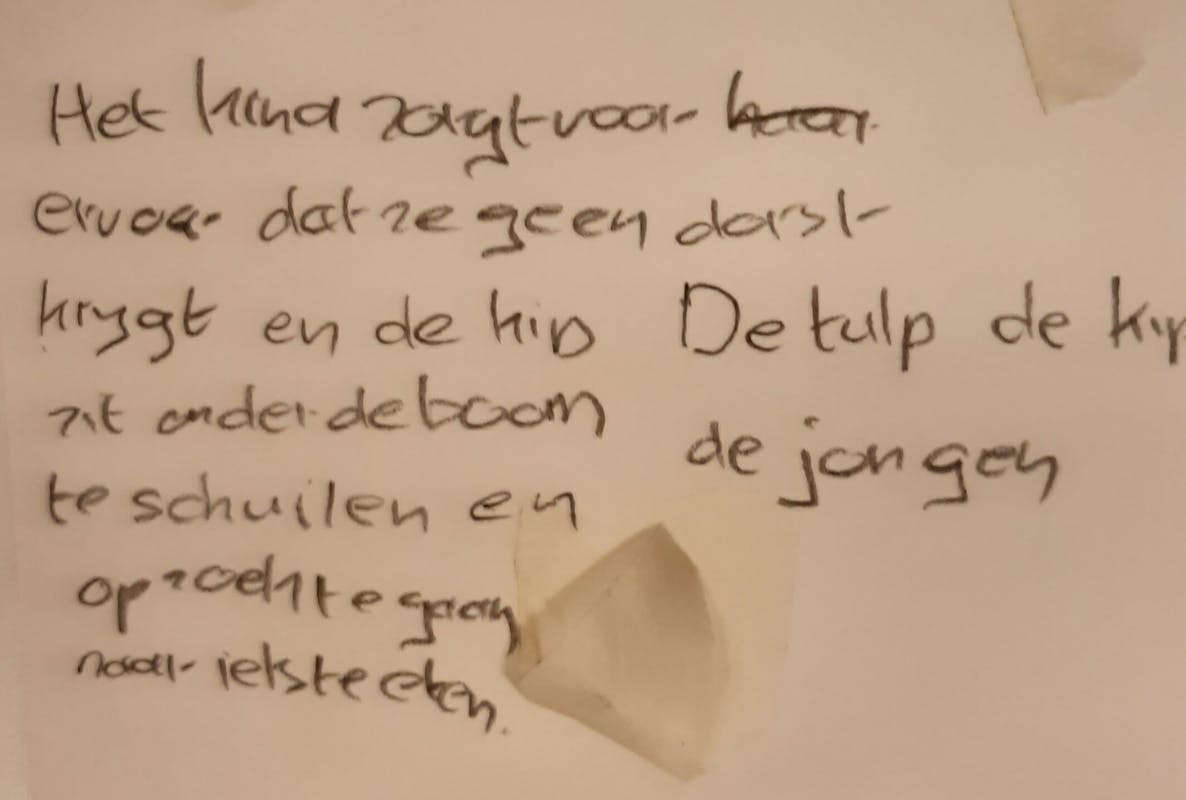 Het kind zorgt voor haar.
ervoor dat ze geen dorst
krygt en de kip
zit onder de boom
te schuilen en
op zoek te gaan
naar iets te eten.
De tulp de kip
de jongen